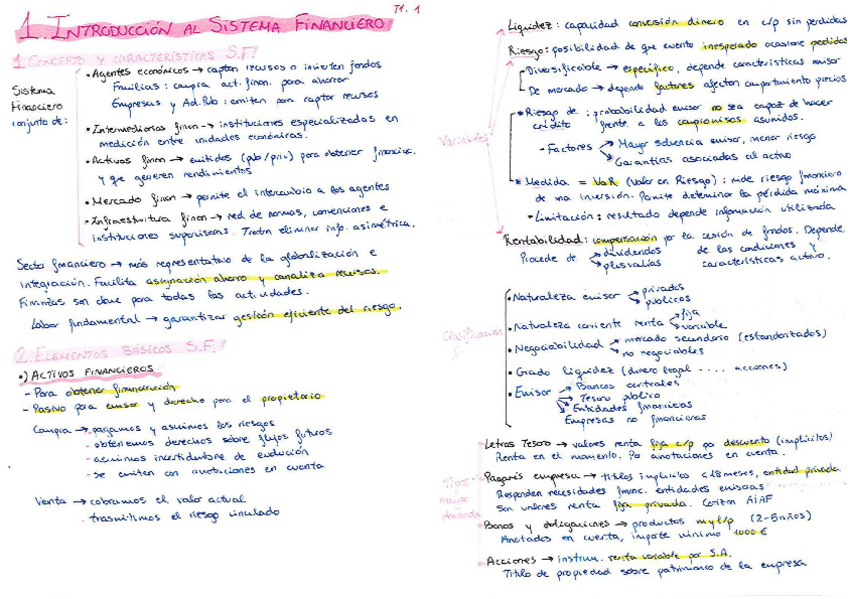 T1. 1
1. INTRODUCCIÓN AL SISTEMA FINANCIERO
1. CONCEPTO Y CARACTERÍSTICAS S.F.
Sistema Financiero conjunto de:
• Agentes económicos → captan recursos o invierten fondos
Familias: compra act. finan. para ahorrar
Empresas y Ad. Púb: emiten para captar recursos
• Intermediarios finan → instituciones especializadas en
medición entre unidades económicas.
• Activos finan → emitidos (pub/priv) para obtener financiac.
y que generen rendimientos
• Mercado finan → permite el intercambio a los agentes
• Infraestructura finan → red de normas, convenciones e
instituciones supervisoras. Tratan eliminar info. asimétrica.
Sector financiero → más representativo de la globalización e
integración. Facilita asignación ahorro y canaliza recursos.
Finanzas son clave para todas las actividades.
Labor fundamental → garantizar gestión eficiente del riesgo.
2. ELEMENTOS BÁSICOS S.F.
•) ACTIVOS FINANCIEROS
- Para obtener financiación
- Pasivo para emisor y derecho para el propietario
Compra → pagamos y asumimos los riesgos
- obtenemos derechos sobre flujos futuros
- asumimos incertidumbre de evolución
- se emiten con anotaciones en cuenta
Venta → cobramos el valor actual
- trasmitimos el riesgo vinculado
Variables
Liquidez: capacidad conversión dinero en c/p sin perdidas
Riesgo: posibilidad de que evento inesperado ocasione perdidas
Diversificable → específico, depende características emisor
De mercado → depende factores afectan comportamiento precios
• Riesgo de crédito: probabilidad emisor no sea capaz de hacer
frente a los compromisos asumidos.
- Factores → Mayor solvencia emisor, menor riesgo
→ Garantías asociadas al activo
• Medida = VaR (Valor en Riesgo): mide riesgo financiero
de una inversión. Permite determinar la pérdida máxima
• Limitación: resultado depende información utilizada
Rentabilidad: compensación por la cesión de fondos. Depende
Procede de → dividendos de las condiciones y
→ plusvalías características activo.
Clasificación
• Naturaleza emisor → privados
→ públicos
• Naturaleza corriente renta → fija
→ variable
• Negociabilidad → mercado secundario (estandarizados)
→ no negociables
• Grado liquidez (dinero legal .... acciones)
• Emisor → Bancos centrales
→ Tesoro público
→ Entidades financieras
Empresas no financieras
Tipos
Letras Tesoro → valores renta fija c/p por descuento (implícitos)
Renta en el momento. Por anotaciones en cuenta.
Pagarés empresa → títulos implícitos < 18 meses, entidad privada
Responden necesidades financ. entidades emisoras
Son valores renta fija privada. Cotizan AIAF
Bonos y obligaciones → productos m y l/p (2-5 años)
Anotados en cuenta, importe mínimo 1000€
Acciones → instrum. renta variable por S.A.
Título de propiedad sobre patrimonio de la empresa